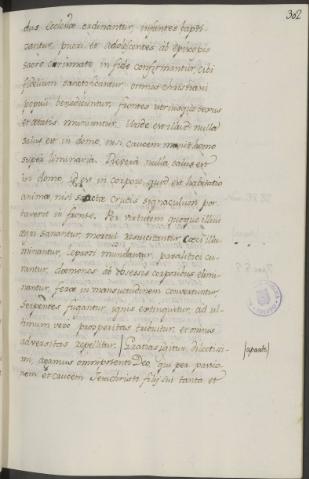 302
dus Ecclesiae ordinantur, infantes bapti-
zantur, pueri et adolescentes ab episcopis
sacro crismate in fide confirmantur, cibi
fidelium sanctificantur, omnis christiani
populi benedicuntur, fontes utriusque sexus
et aetatis muniuntur. Unde est illud: nulla
salus est in domo, nisi crucem munit homo
super liminaria. Revera nulla salus est
in domo, id est in corpore, quod est habitatio
animae, nisi sanctae crucis signaculum por-
taverit in fronte. Per virtutem quoque illius
egri sanantur, mortui resuscitantur, caeci illu-
minantur, leprosi mundantur, paralitici cu-
rantur, daemones ab obsessis corporibus elimi-
nantur, ferae in mansuetudinem convertuntur,
serpentes fugantur, ignis extinguitur, ad ul-
timum vero prosperitas tribuitur, et omnis
adversitas repellitur. / Gratias igitur, dilectissi-
mi, agamus omnipotenti Deo, qui per passio-
nem et crucem Jesuchristi filij sui tanta et
/aparte/